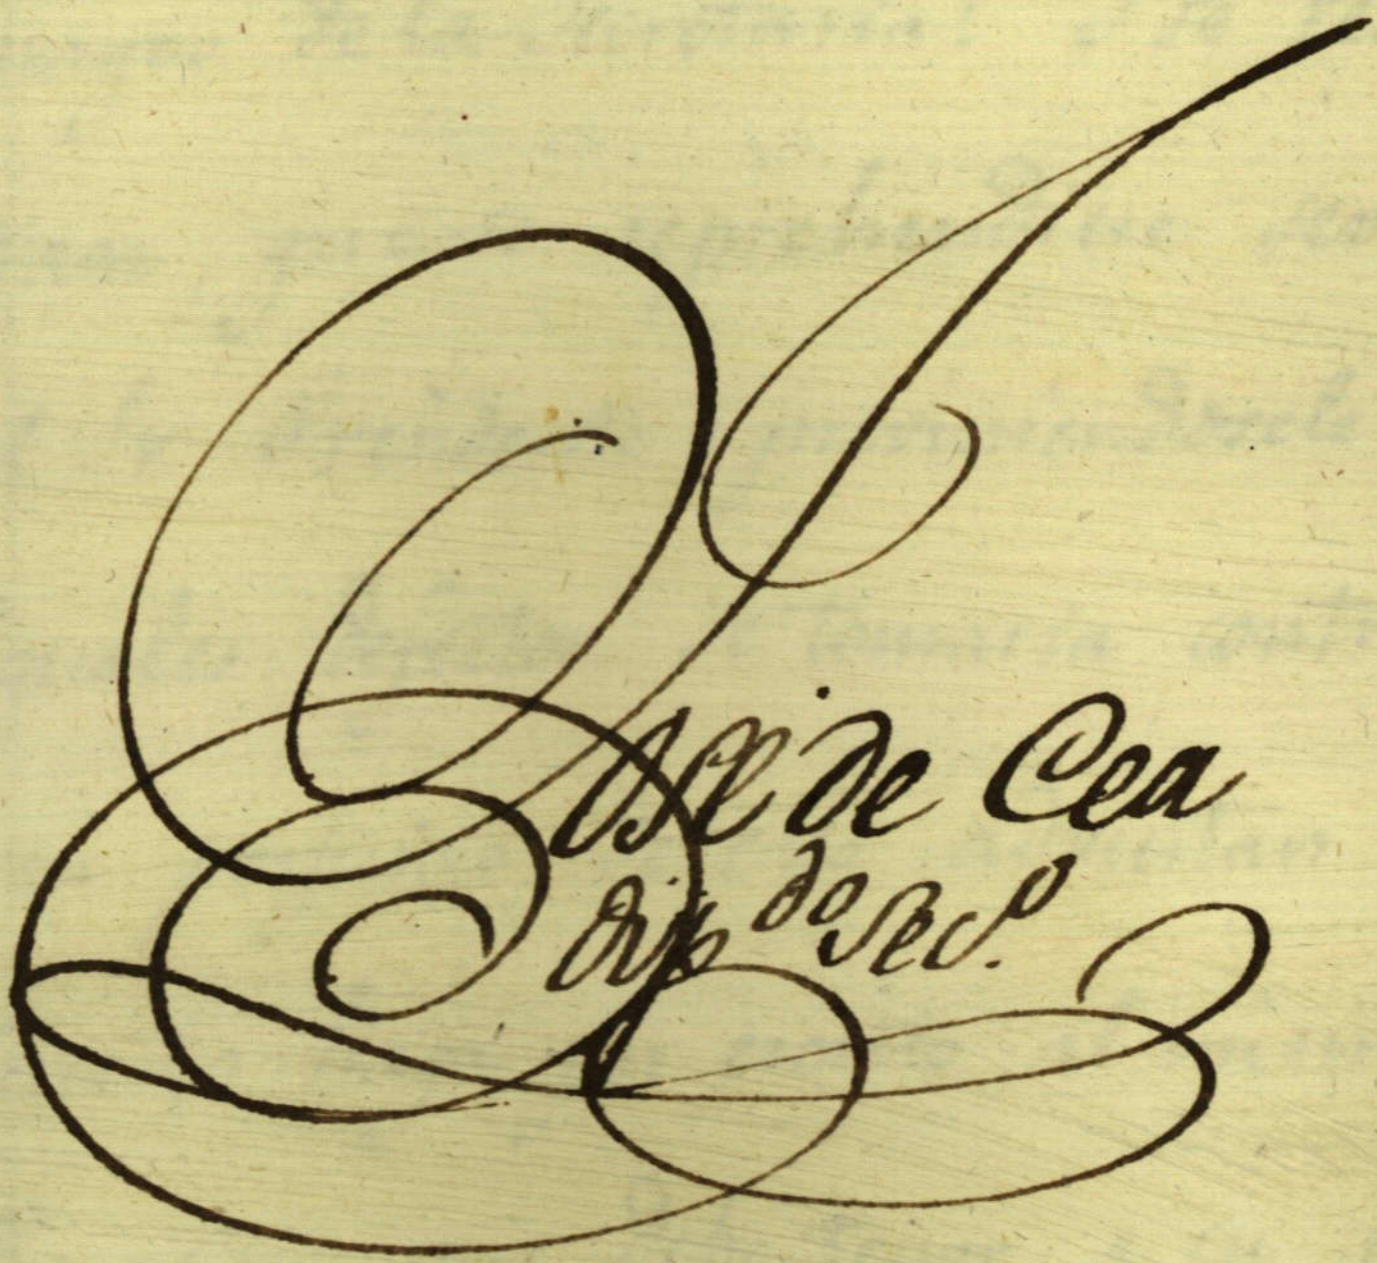 José de Cea
Dip.do Sec.o